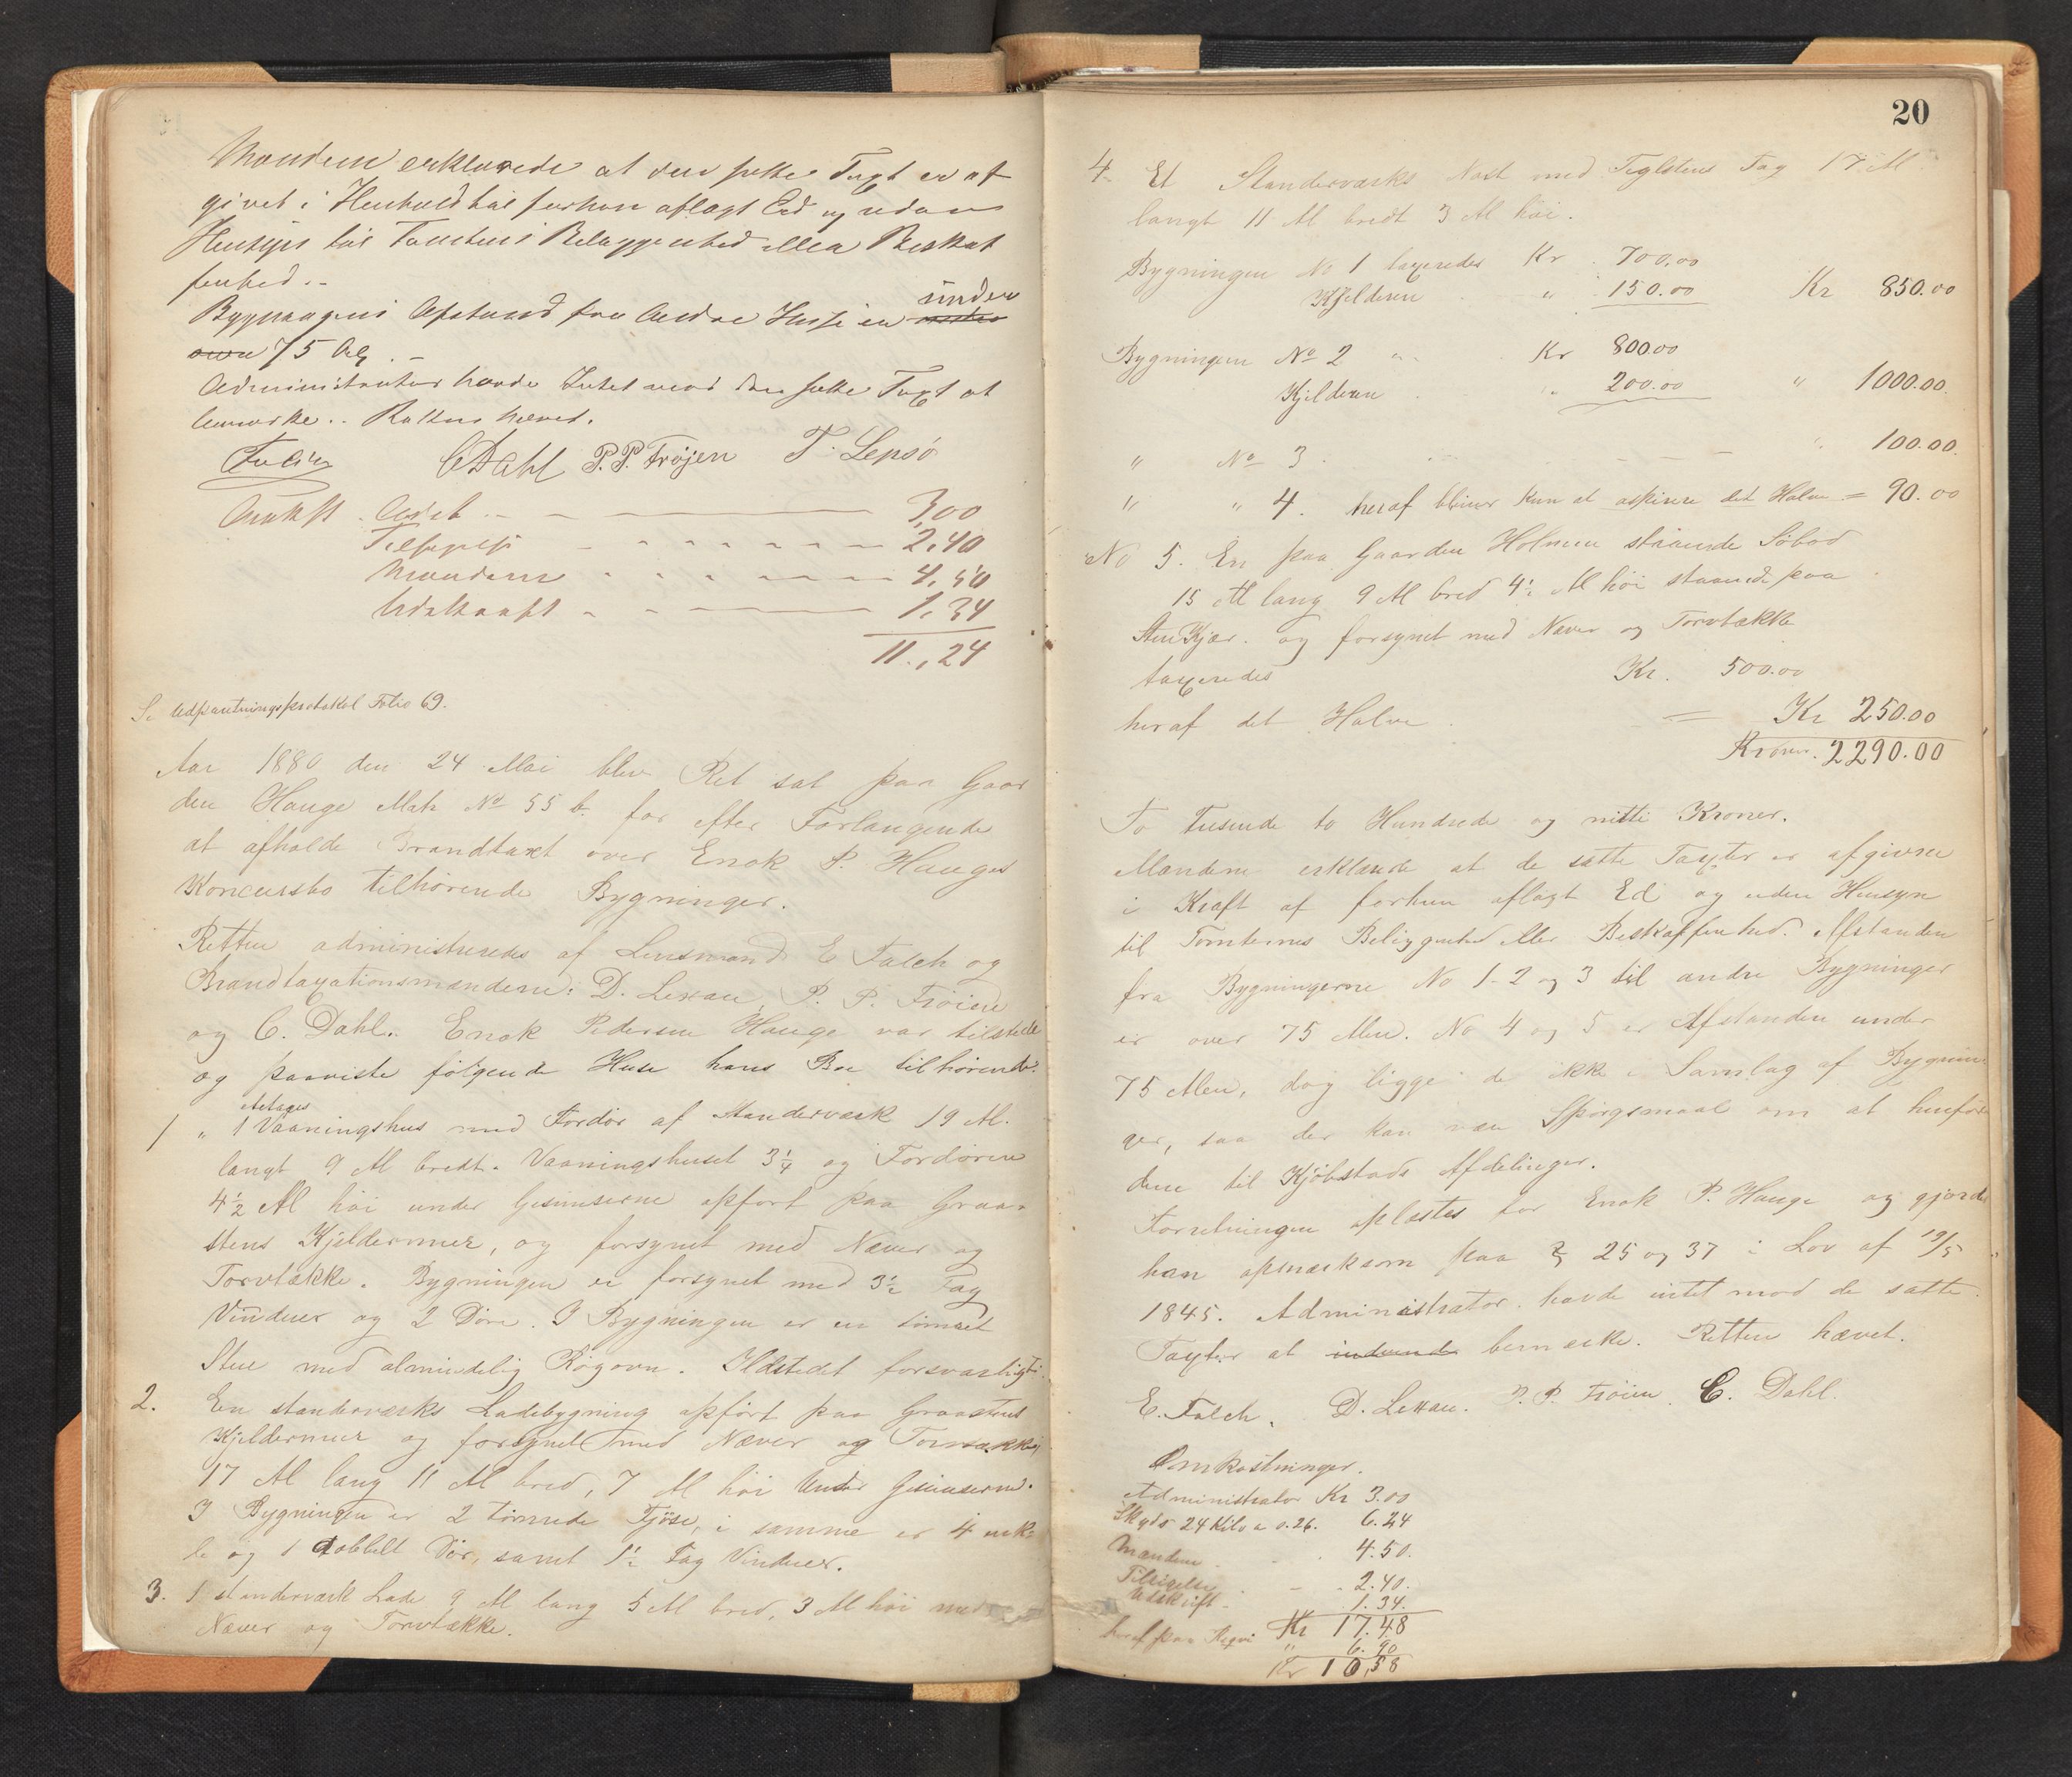 Mændene erklærede at den satte Taxt er af
givet i Henhold til forhen aflagt Ed og uden
Hensyn til Tomtens Beliggenhed eller Beskaf
fenhed.-
Bygningens Afstand fra Andre Huse er under
75 Al. -
Administrator havde Intet mod den satte Taxt at
bemærke.. Retten hævet.
CDahl P.P. Frøjen T. Lepsö
Admt. 3,00
Tilsigelse 2,40
Mændene 4,50
Udskrift 1,34
11,24
Se Udpantningsprotokol Folio 69.
Aar 1880 den 24 Mai blev Ret sat paa Gaar
den Hauge Matr No 55 b. for efter Forlangende
at afholde Brandtaxt over Enok P. Hauges
Koncursbo tilhørende Bygninger.
Retten administreredes af Lensmand E Falch og
Brandtaxationsmændene: D. Lexau, P. P. Frøien
og C. Dahl. Enok Pedersen Hauge var tilstede
og paaviste følgende Huse hans Bo tilhørende:
1 " 1 Etages Vaaningshus med Fordør af Standerværk 19 Al.
langt 9 Al bredt. Vaaningshuset 3¼ og Fordøren
4½ Al høi under Gesimserne opført paa Graa-
stens Kjeldermur, og forsynet med Næver og
Torvtække. Bygningen er forsynet med 3½ Fag
Vinduer og 2 Døre. I Bygningen er en tømret
Stue med almindelig Røgovn. Ildstedet forsvarligt.
2. En standerværks Ladebygning opført paa Graastens
Kjeldermur og forsynet med Næver og Torvtække,
17 Al lang 11 Al bred, 7 Al høi under Gesimserne.
I Bygningen er 2 tømrede Fjøse, i samme er 4 enk-
le og 1 dobbelt Dør, samt 1½ Fag Vinduer.
3. 1 standerværk Lade 9 Al lang 5 Al bred, 3 Al høi med
Næver og Torvtække.
20
4. Et Standerværks Nøst med Teglstens Tag 17 Al
langt 11 Al bredt 3 Al høi.
Bygningen No 1 taxeredes Kr. 700,00
Kjelderen " 150.00 Kr 850.00
Bygningen No 2 " Kr 800.00
Kjelderen " 200.00 " 1000.00.
" No 3. " 100.00.
" " 4. heraf bliver kun at det Halve = 90.00
No 5. En paa Gaarden Holmen staaende Søbod
15 Al lang 9 Al bred 4½ Al høi staaende paa
og forsynet med Næver og Torvtække
taxeredes Kr. 500.00
heraf det Halve = Kr 250.00
Kroner. 2290.00
To Tusende to Hundrede og nitti Kroner.
Mændene erklærede at de satte Taxter er afgivne
i Kraft af forhen aflagt Ed og uden Hensyn
til Tomternes Beliggenhed eller Beskaffenhed. Afstanden
fra Bygningerne No 1-2 og 3 til andre Bygninger
er over 75 Alen. No 4 og 5 er Afstanden under
75 Alen, dog ligge de ikke i Samlag af Bygnin-
ger, saa der kan være Spørgsmaal om at henføre
dem til Kjøbstads Afdelinger.
Forretningen oplæstes for Enok P. Hauge og gjordes
han opmærksom paa § 25 og 37 i Lov af 19/5
1845. Administrator havde intet mod de satte
Taxter at indvende bemærke. Retten hævet.
E. Falch. D. Lexau. P. P. Frøien. C. Dahl.
Omkostninger.
Administrator Kr 3.00
Skyds 24 Kilo a 0.26. 6.24
Mændene 4.50.
Tilsigelse 2.40.
Udskrift 1.34.
Kr 17.48
heraf paa Reqvi " 6.90
Kr 10,58